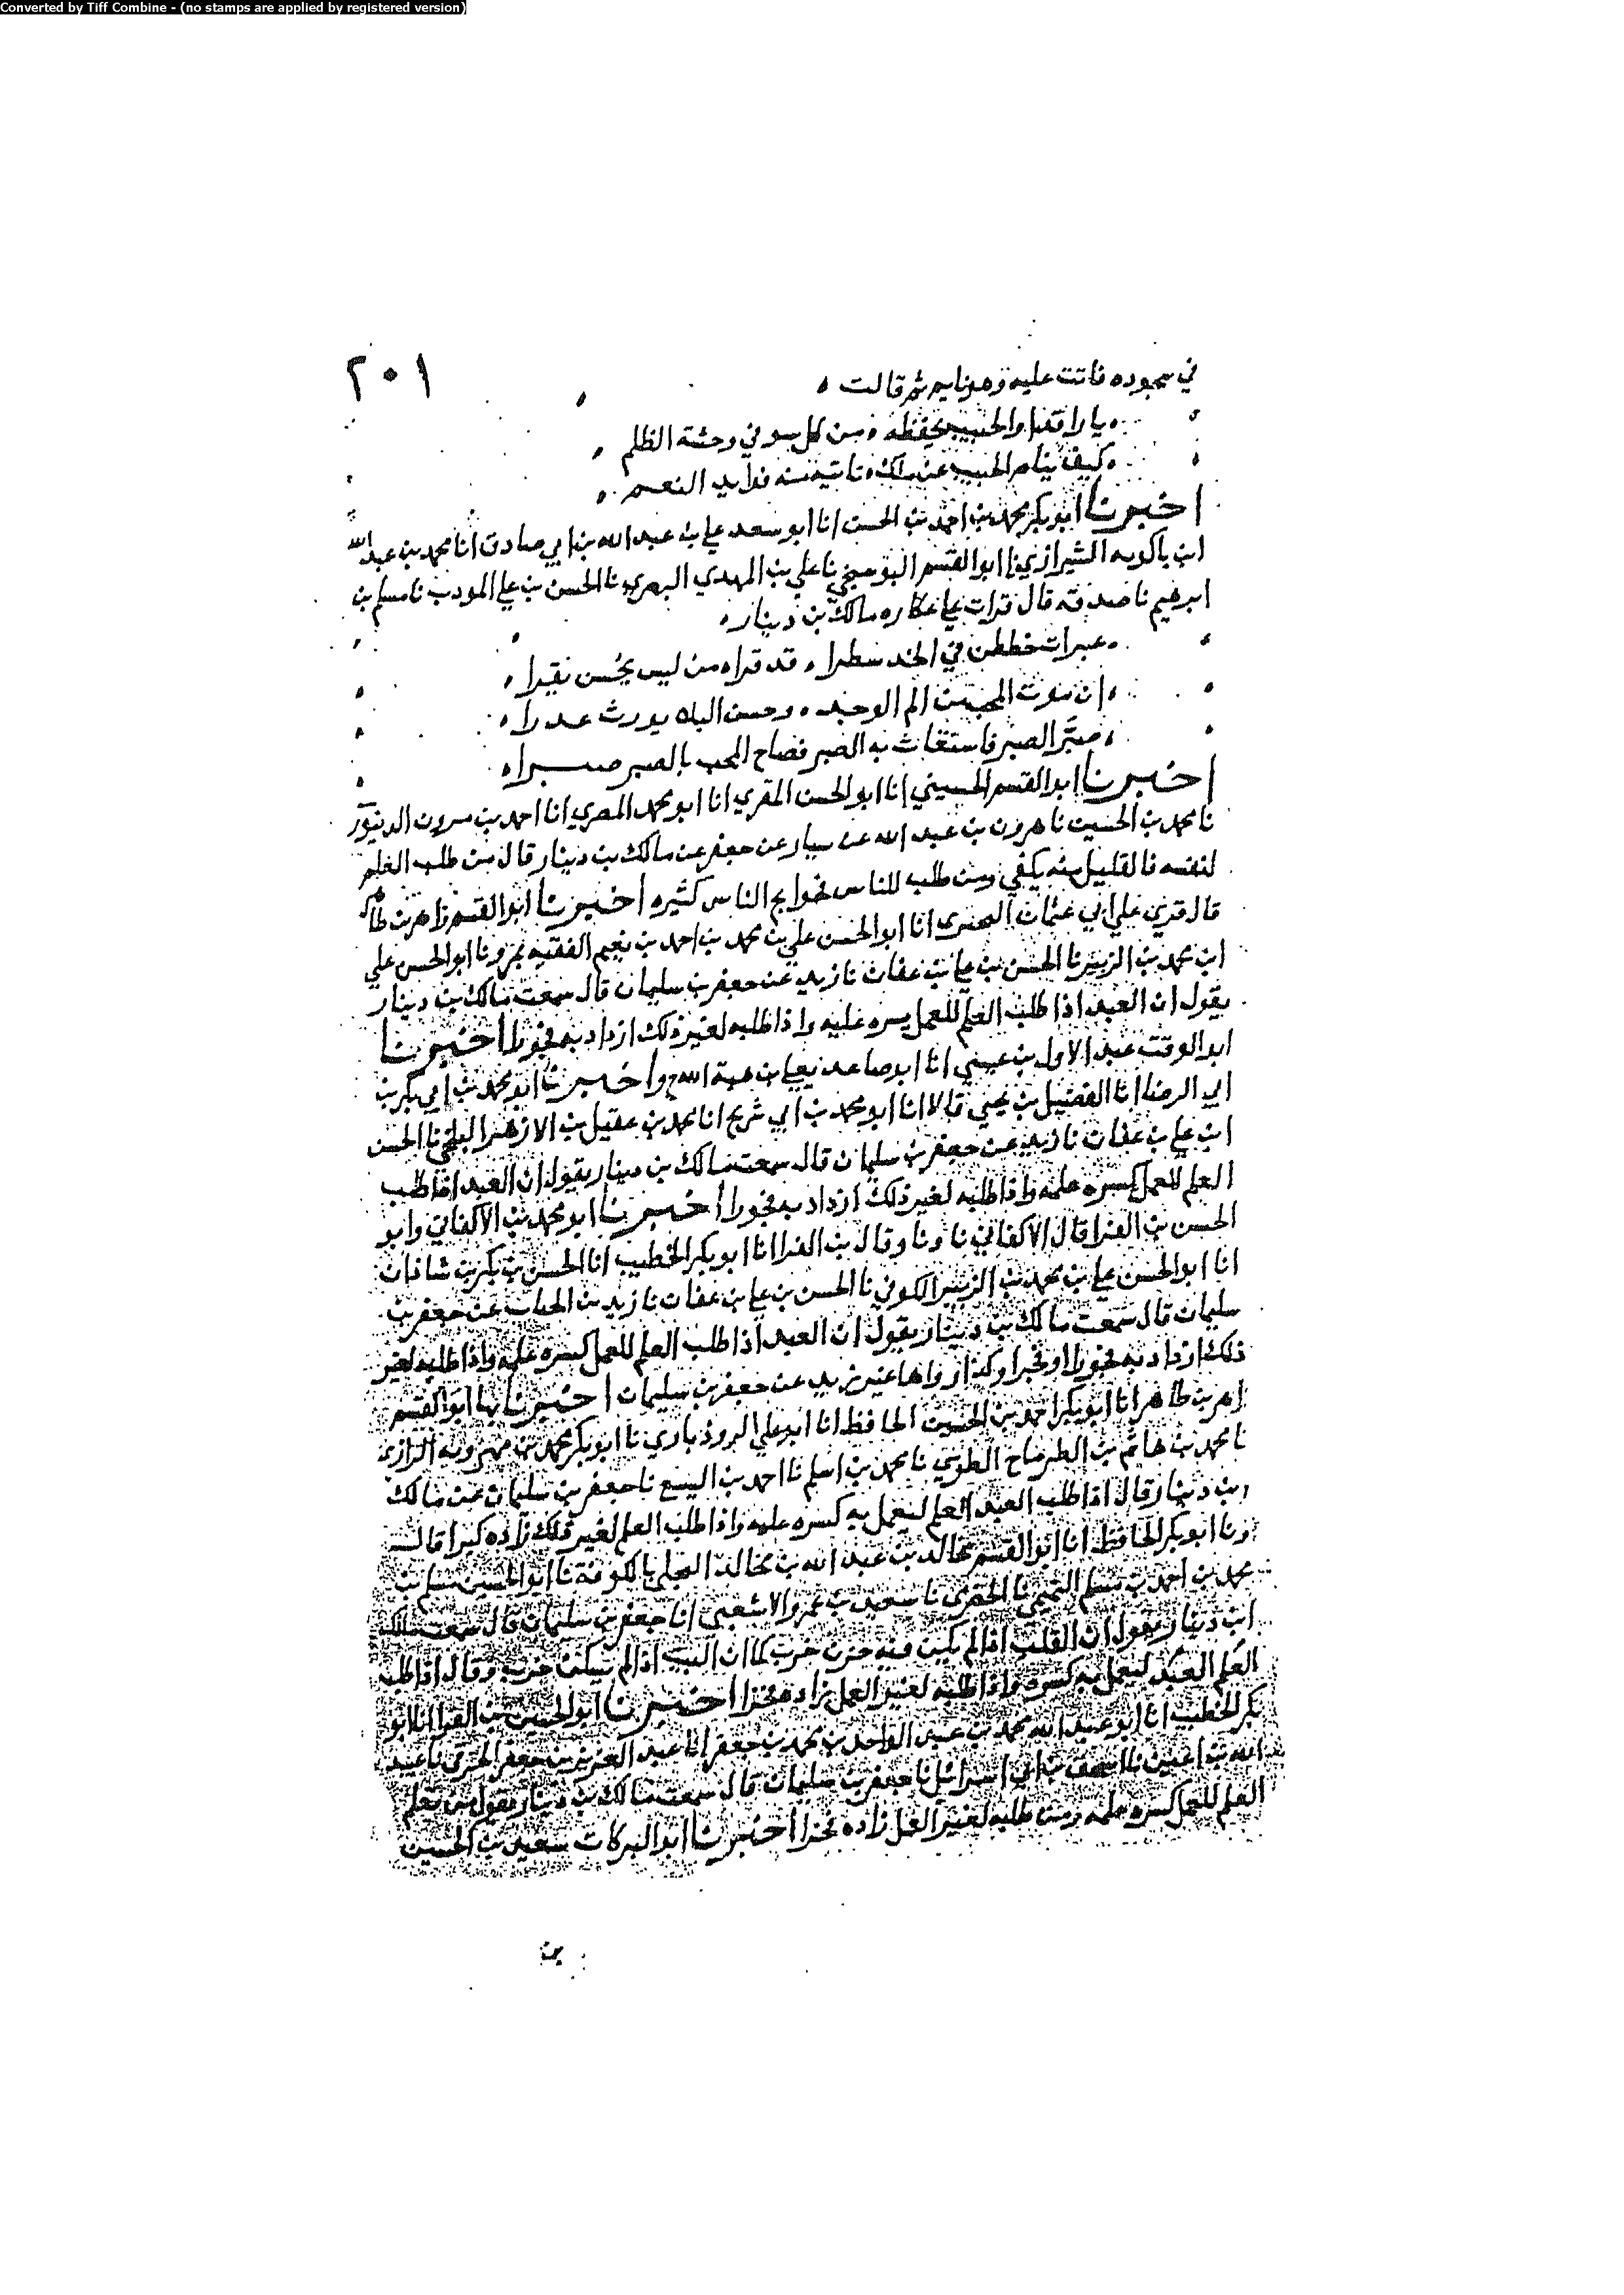 Converted by Tiff Combine - (no stamps are applied by registered version)
٢٠١
في سجوده فاتت عليه وهو نايم ثم قالت
يا راقدا والحبيب يحفظه من كل سو في وحشة الظلم
كيف ينام الحبيب عن ملك تاتيه منه فوايد النعم
اخبرنا ابو بكر محمد بن احمد بن الحسن انا ابو سعد علي بن عبد الله بن ابي صادق انا محمد بن عبد الله
ابن باكويه الشيرازي نا ابو القسم البوسنجي نا علي بن المهدي البصري نا الحسن بن علي المودب نا مسلم بن
ابرهيم نا صدقة قال قرات على عكازه مالك بن دينار
عبرات خططن في الخد سطرا قد قراه من ليس يحسن يقرا
ان موت المحب من الم الوجد وحسن البلا يورث عدرا
صبّر الصبر فاستغاث به الصبر فصاح المحب بالصبر صبرا
اخبرنا ابو القسم الحسيني انا ابو الحسن المقري انا ابو محمد المصري انا احمد بن مرون الدينور
نا محمد بن الحسين نا هرون بن عبد الله عن سيار عن جعفر عن مالك بن دينار قال من طلب العلم
لنفسه فالقليل منه يكفي ومن طلب للناس فحوايج الناس كثيره اخبرنا ابو القسم زاهر بن طاهر
قال قري على ابي عثمان انا ابو الحسن علي بن محمد بن احمد بن نعيم الفقيه بمرو نا ابو الحسن علي
ابن محمد بن الزبير نا الحسن بن علي بن عفان نا زيد عن جعفر بن سليمان قال سمعت مالك بن دينار
يقول ان العبد اذا طلب العلم للعمل يسره عليه واذا طلبه لغير ذلك ازداد به فجورا اخبرنا
ابو الوقت عبد الاول بن عيسى انا ابو صاعد يعلى بن هبة الله ح واخبرنا ابو محمد بن ابي بكر بن
ابي الرضا انا الفضيل بن يحيى قالا انا ابو محمد بن ابي شريح انا محمد بن عقيل بن الازهر البلخي نا الحسن
ابن علي بن عفان نا زيد عن جعفر بن سليمان قال سمعت مالك بن دينار يقول ان العبد اذا طلب
العلم للعمل كسره علمه واذا طلبه لغير ذلك ازداد به فجورا اخبرنا ابو محمد بن الاكفاني وابو
الحسن بن الفرا قال الاكفاني نا ونا وقال بن الفرا انا ابو بكر الخطيب انا الحسن بن بكر بن شاذان
انا ابو الحسن علي بن محمد بن الزبير الكوفي نا الحسن بن علي بن عفان نا زيد بن الحباب عن جعفر بن
سليمان قال سمعت مالك بن دينار يقول ان العبد اذا طلب العلم للعمل كسره علمه واذا طلبه لغير
ذلك ازداد به فجورا او فخرا وكذا رواها غير زيد عن جعفر بن سليمان اخبرنا بها ابو القسم
زاهر بن طاهر انا ابو بكر احمد بن الحسين الحافظ انا ابو علي الروذباري نا ابو بكر محمد بن مهرويه الرازي
نا محمد بن حاتم بن الطرماح الطوسي نا محمد بن اسلم نا احمد بن اليسع نا جعفر بن سليمان عن مالك
بن دينار قال اذا طلب العبد العلم ليعمل به كسره علمه واذا طلب العلم لغير ذلك زاده كبرا قال
ونا ابو بكر الحافظ انا ابو القسم مخالد بن عبد الله بن مخالد البجلي بالكوفة نا ابو الحسين مسلم بن
محمد بن احمد بن مسلم التميمي نا الحضرمي نا سعيد بن عمرو الاشعثي انا جعفر بن سليمان قال سمعت مالك
ابن دينار يقول ان القلب اذا لم يكن فيه حزن خرب كما ان البيت اذا لم يسكن خرب وقال اذا طلب
العلم العبد ليعمل به كسره واذا طلبه لغير العمل زاده فخرا اخبرنا ابو الحسين بن الفرا انا ابو
بكر الخطيب انا ابو عبد الله محمد بن عبد الواحد بن محمد بن جعفر انا عبد العزيز بن جعفر الخرقي نا عبد
الله بن اعين نا اسحق بن ابي اسرائيل نا جعفر بن سليمان قال سمعت مالك بن دينار يقول من تعلم
العلم للعمل كسره علمه ومن طلبه لغير العمل زاده فخرا اخبرنا ابو البركات سعيد بن الحسين
بن